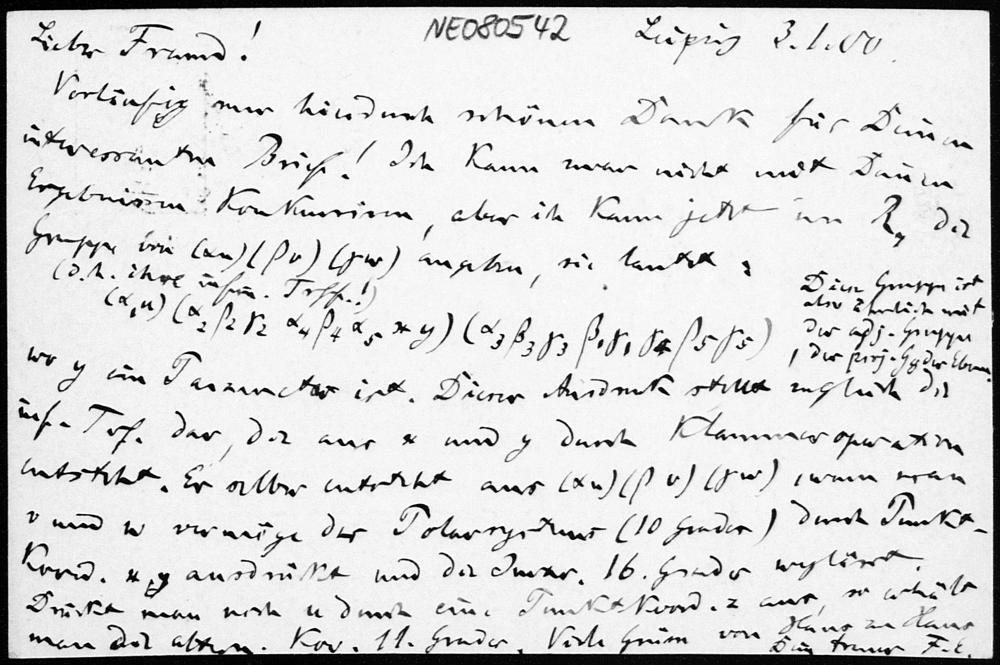 NE080542
Leipzig 3.1.00.
Lieber Freund!
Vorläufig nur hierdurch schönen Dank für Deinen
interessanten Brief! Ich kann zwar nicht mit Deinen
Ergebnissen konkurriren, aber ich kann jetzt im R₉ die
Gruppe von (αu)(βv)(γw) angeben, sie lautet:
(d.h. ihre infin. Trff.!)
(α₁u)(α₂β₂γ₂ α₄β₄α₅ x y)(α₃β₃γ₃ β₁γ₁γ₄β₅γ₅)
Diese Gruppe ist
also ähnlich mit
der adj. Gruppe
der proj. G₈ der Ebene.
wo y ein Parameter ist. Dieser Ausdruck stellt zugleich die
inf. Trf. dar, die aus x und y durch Klammeroperation
entsteht. Er selber entsteht aus (αu)(βv)(γw), wenn man
v und w vermöge des Polarsystems (10 Grades) durch Punkt-
koord. x, y ausdrückt und die Invar. 16. Grades weglässt.
Drückt man noch u durch eine Punktkoord. z aus, so erhält
man die altern. Kov. 11. Grades. Viele Grüsse von Haus zu Haus
Dein treuer F. E.